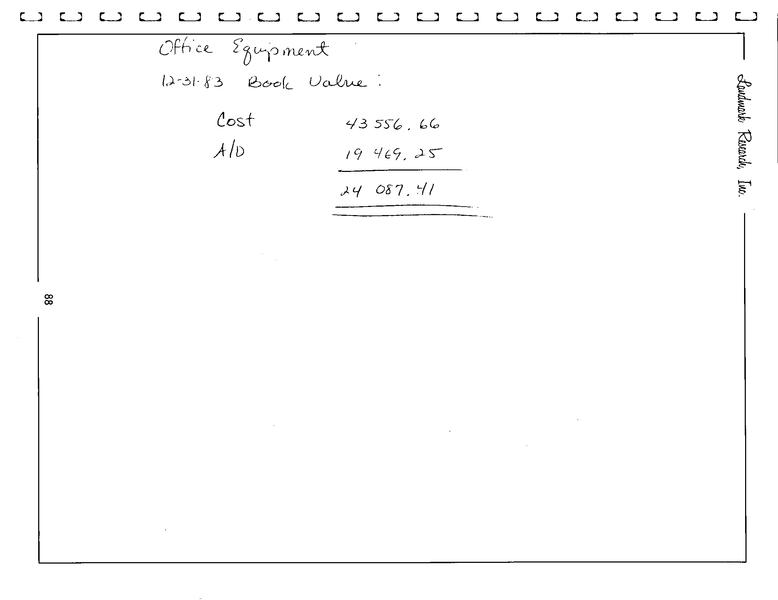 Office Equipment
12-31-83 Book Value:
Cost 43 556.66
A/D 19 469.25
24 087.41
Landmark Research, Inc.
88